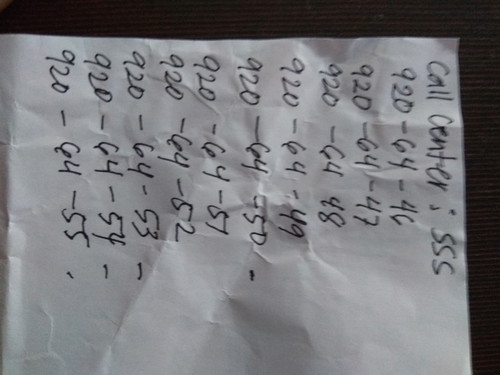 Call Center: SSS
920-64-46
920-64-47
920-64 48
920-64-49
920-64-50 -
920-64-51
920-64-52
920-64-53 -
920-64-54 -
920-64-55 .